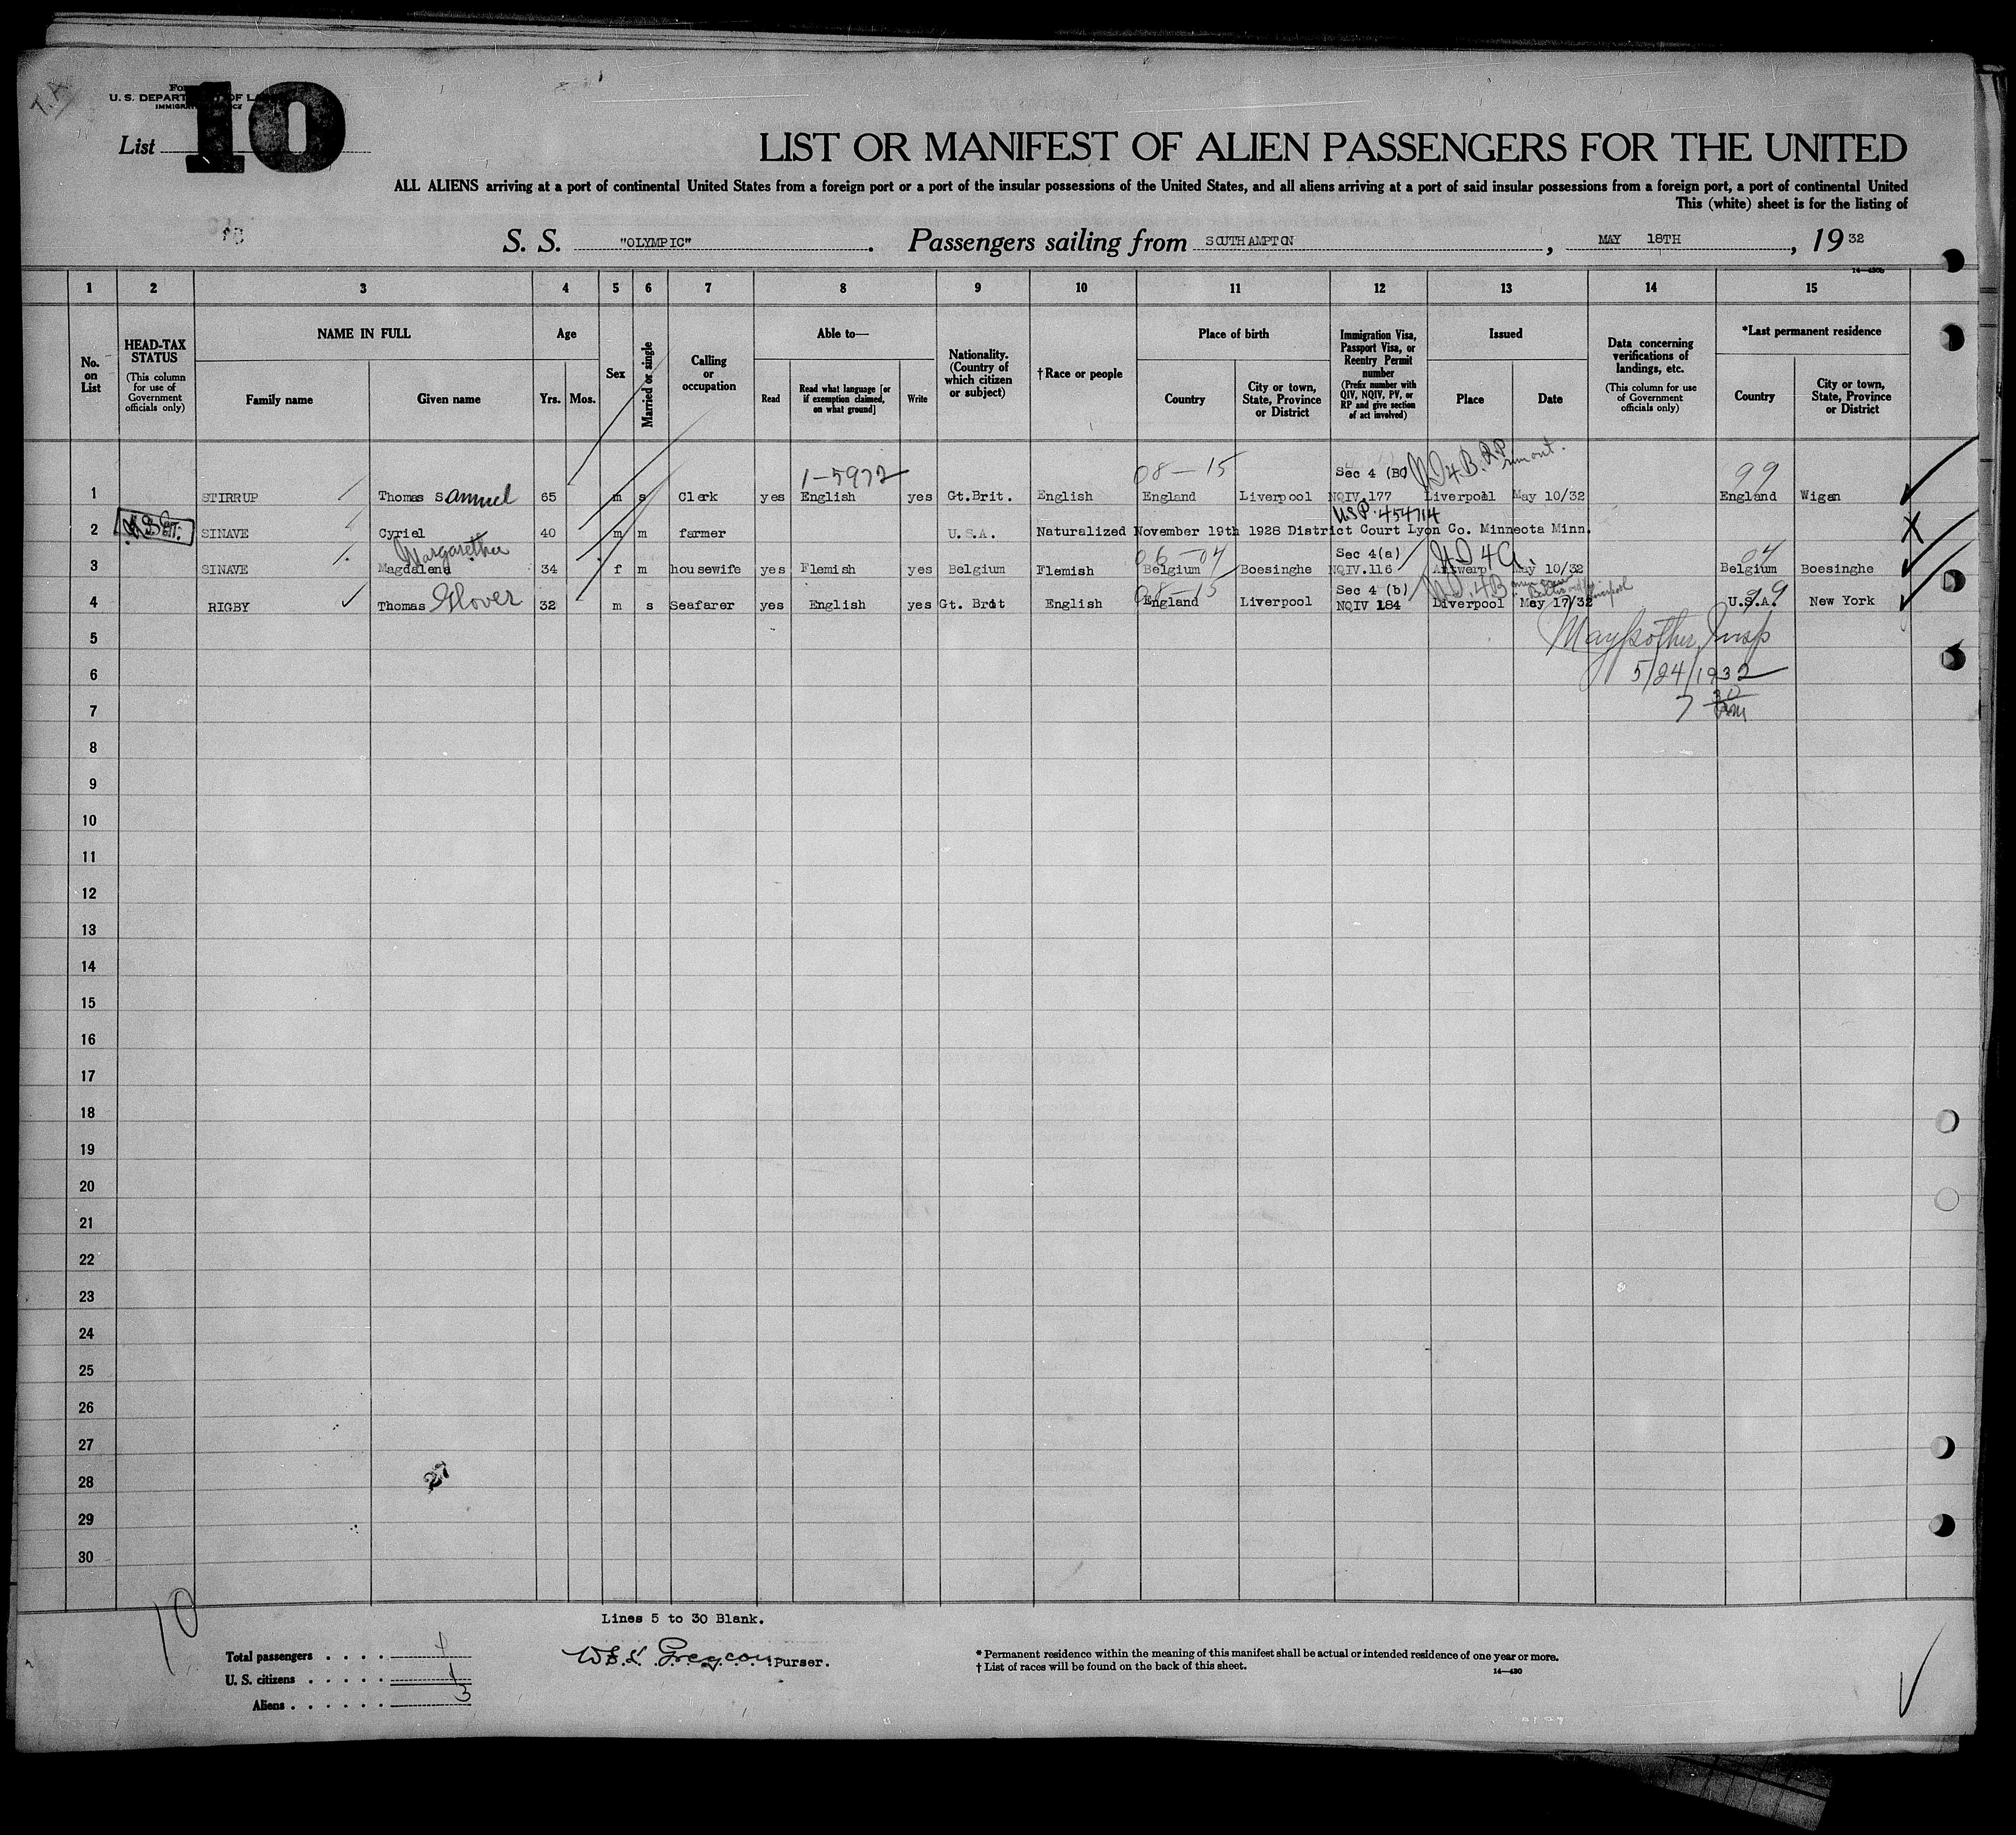 10
U. S. DEPART OF LA
List
LIST OR MANIFEST OF ALIEN PASSENGERS FOR THE UNITED
ALL ALIENS arriving at a port of continental United States from a foreign port or a port of the insular possessions of the United States, and all aliens arriving at a port of said insular possessions from a foreign port, a port of continental United
This (white) sheet is for the listing of
S. S. "OLYMPIC". Passengers sailing from SOUTHAMPTON, MAY 18TH, 1932
1 2 3 4 5 6 7 8 9 10 11 12 13 14 15
No. on List
HEAD-TAX STATUS (This column for use of Government officials only)
NAME IN FULL
Family name
Given name
Age
Yrs. Mos.
Sex
Married or single
Calling or occupation
Able to—
Read
Read what language [or if exemption claimed, on what ground]
Write
Nationality. (Country of which citizen or subject)
†Race or people
Place of birth
Country
City or town, State, Province or District
Immigration Visa, Passport Visa, or Reentry Permit number (Prefix number with QIV, NQIV, PV, or RP and give section of act involved)
Issued
Place
Date
Data concerning verifications of landings, etc. (This column for use of Government officials only)
*Last permanent residence
Country
City or town, State, Province or District
1-5972 08-15 Sec 4 (B) 99
1 STIRRUP Thomas Samuel 65 m s Clerk yes English yes Gt.Brit. English England Liverpool NQIV.177 Liverpool May 10/32 England Wigan
USP. 454714
2 SINAVE Cyriel 40 m m farmer U.S.A. Naturalized November 19th 1928 District Court Lyon Co. Minneota Minn.
Margaretha 06-04 Sec 4(a) 04
3 SINAVE Magdalena 34 f m housewife yes Flemish yes Belgium Flemish Belgium Boesinghe NQIV.116 Antwerp May 10/32 Belgium Boesinghe
08-15 Sec 4 (b) 99
4 RIGBY Thomas Glover 32 m s Seafarer yes English yes Gt. Brit English England Liverpool NQIV 184 Liverpool May 17/32 U.S.A. New York
5
6 5/24/1932
7 7 30
8
9
10
11
12
13
14
15
16
17
18
19
20
21
22
23
24
25
26
27
28 27
29
30
10
Lines 5 to 30 Blank.
Total passengers . . . . 4
U. S. citizens . . . . . 1
Aliens . . . . . . 3
Purser.
* Permanent residence within the meaning of this manifest shall be actual or intended residence of one year or more.
† List of races will be found on the back of this sheet.
14—430